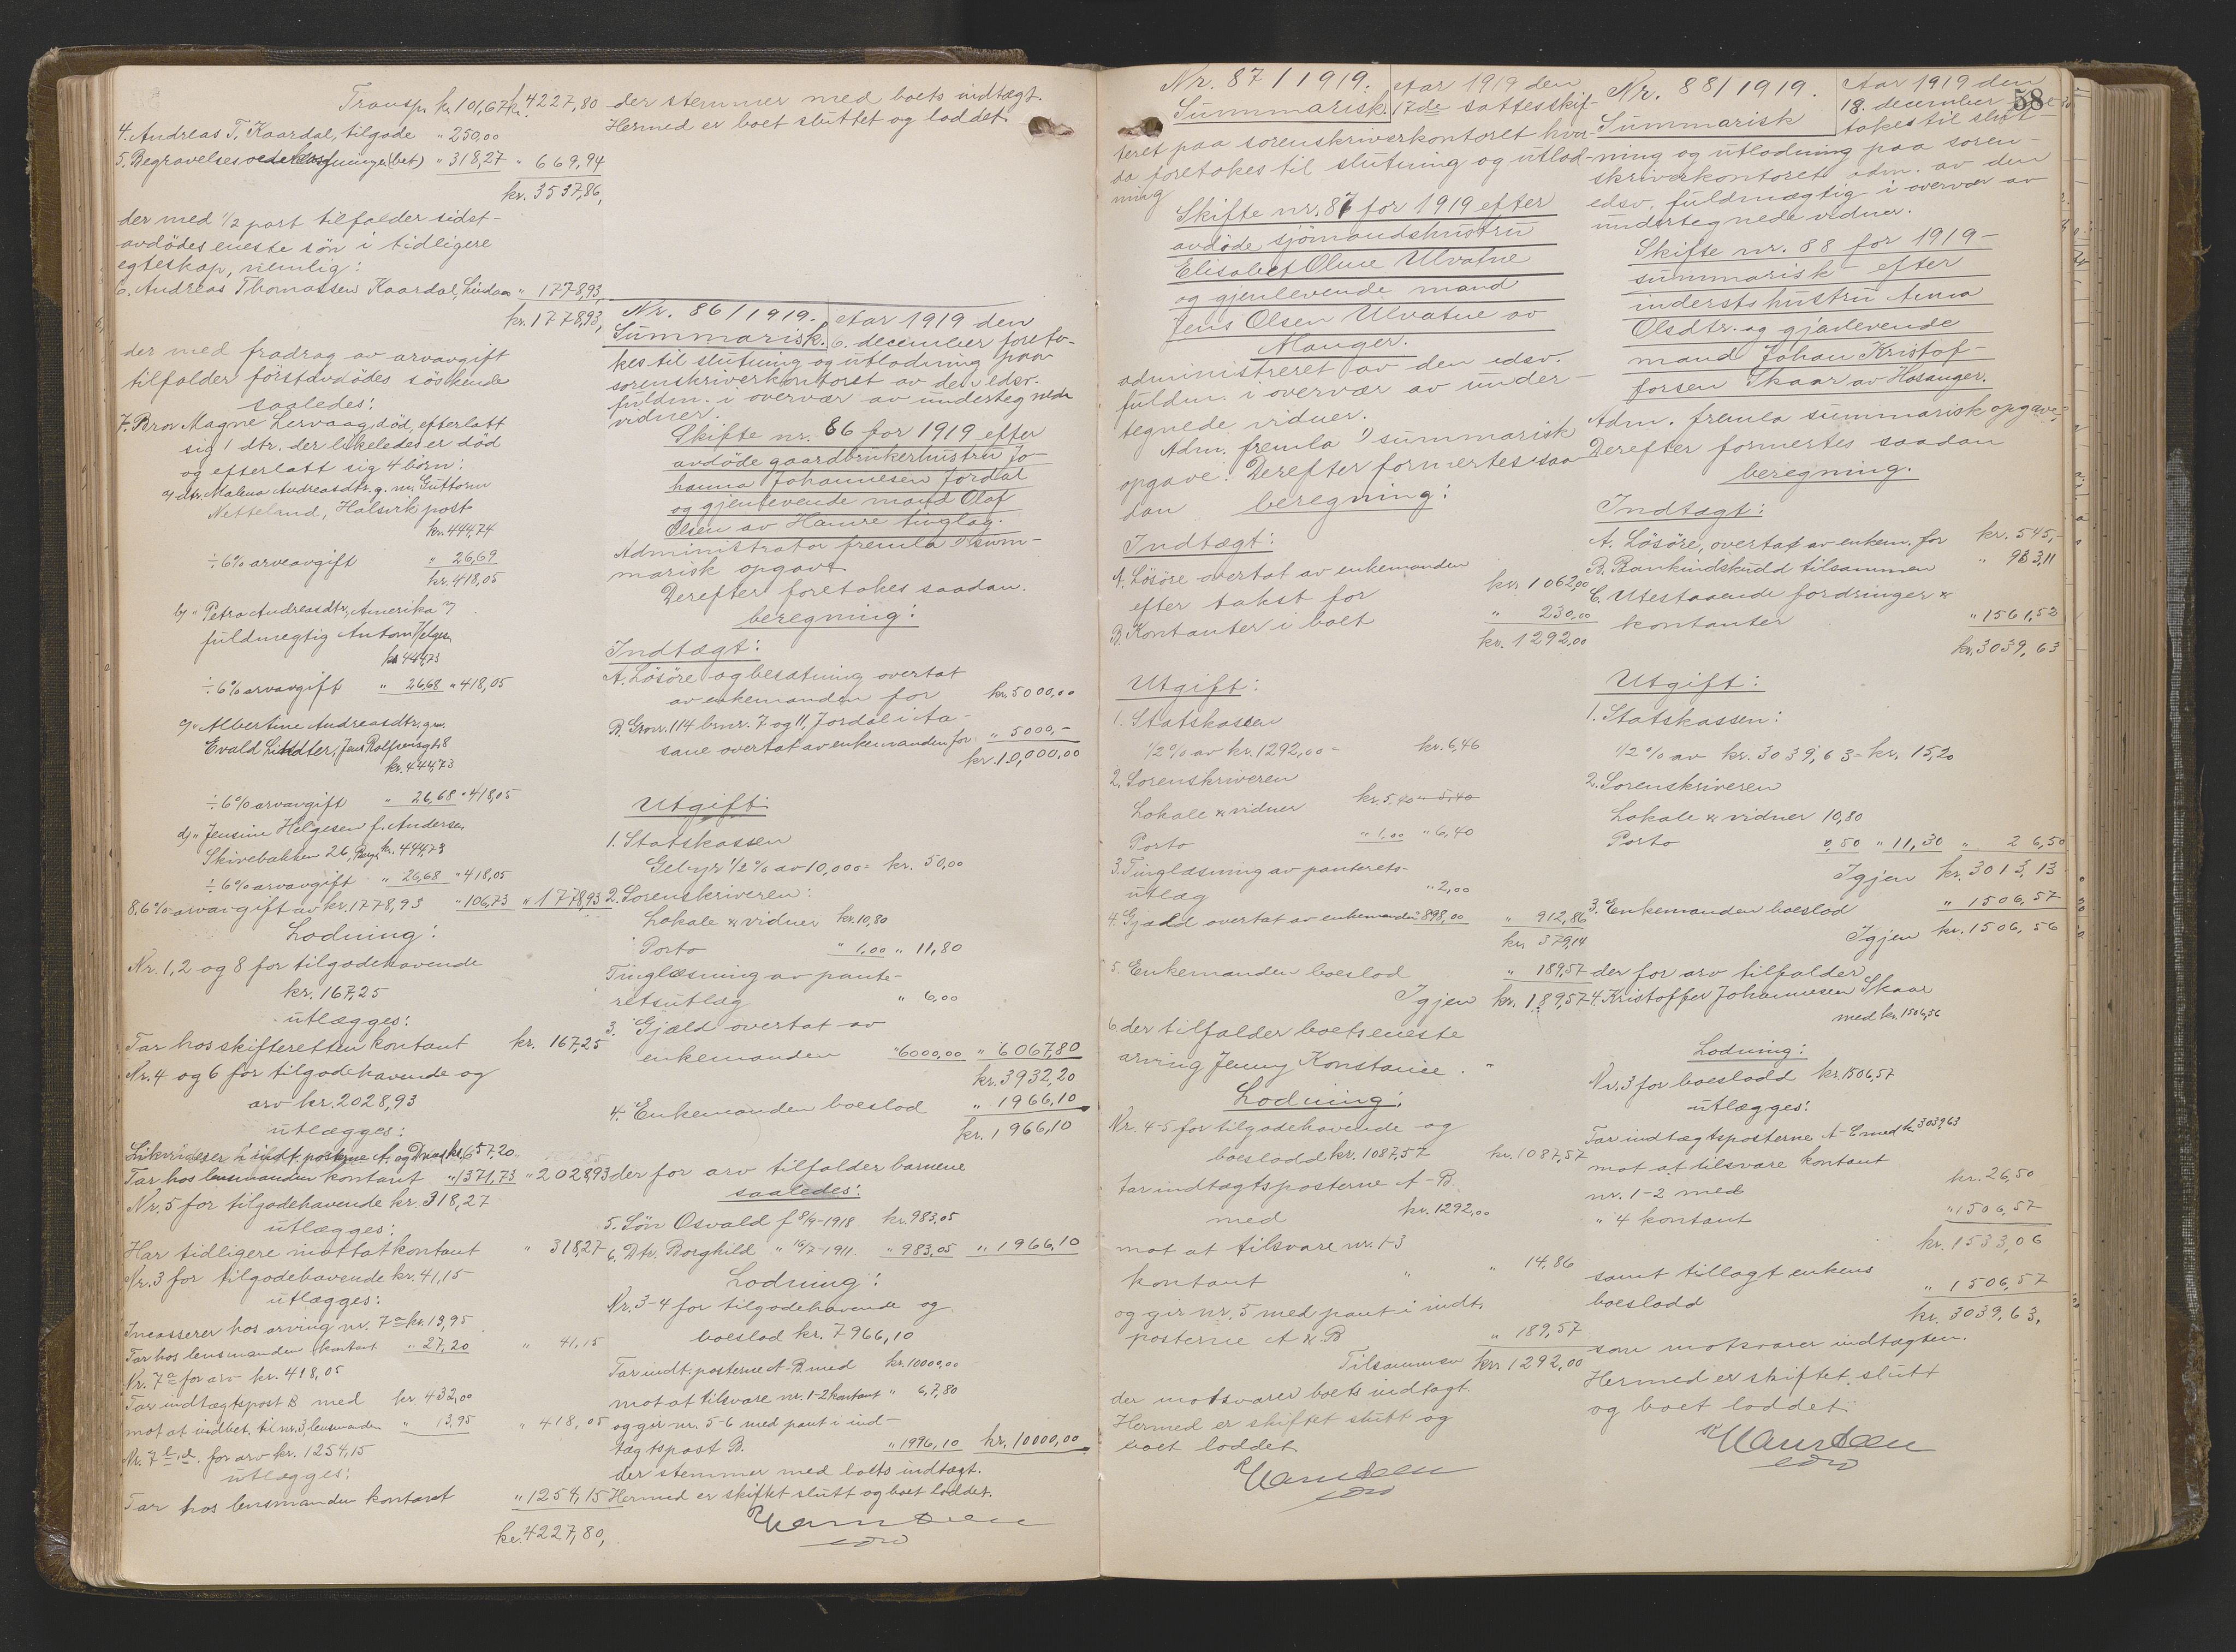 Transp. kr. 101,67 kr. 4227,80
4. Andreas T. Kaardal, tilgode " 250,00
5. Begravelses (bet) " 318,27 " 669,94
kr. 3537,86,
der med 1/2 part tilfalder sidst-
avdödes eneste sön i tidligere
egteskap, nemlig:
6. Andreas Thomassen Kaardal, Lindaas " 1778,93,
kr. 1778,93,
der med fradrag av arvavgift
tilfalder förstavdödes söskende
saaledes:
7. Bror Magne Lervaag, död, efterlatt
sig 1 dtr. der likeledes er död
og efterlatt sig 4 börn:
a) dtr. Malena Andreasdtr. g. m. Guttorm
Netteland, Halsvik post
kr. 444,74
÷ 6% arveavgift " 26,69
kr. 418,05
b) " Petra Andreasdtr., Amerika
fuldmegtig Anton Helgesen
kr. 444,73
÷ 6% arvavgift " 26,68 " 418,05
c) " Albertine Andreasdtr. g. m.
Evald Lindter, Jens Rolfsensgt. 8
kr. 444,73
÷ 6% arvavgift " 26,68 " 418,05
d) " Jensine Helgesen f. Andersen
Skivebakken 26, Berg. kr. 444,73
÷ 6% arvavgift " 26,68 " 418,05
8. 6% arvavgift av kr. 1778,93 " 106,73 " 1778,93
Lodning:
Nr. 1, 2 og 8 for tilgodehavende
kr. 167,25
utlægges:
Tar hos skifteretten kontant kr. 167,25
Nr. 4 og 6 for tilgodehavende og
arv kr. 2028,93
utlægges:
Likviderer i indt. posterne A. og D med kr. 657,20
Tar hos lensmanden kontant " 1371,73 " 2028,93
Nr. 5 for tilgodehavende kr. 318,27
utlægges:
Har tidligere mottat kontant " 318,27
Nr. 3 for tilgodehavende kr. 41,15
utlægges:
Incasserer hos arving nr. 7a kr. 13,95
Tar hos lensmanden kontant " 27,20 " 41,15
Nr. 7a for arv kr. 418,05
Tar indtægtspost B med kr. 432,00
mot at indbet. til nr. 3, lensmanden " 13,95 " 418,05
Nr. 7 b-d. for arv kr. 1254,15
utlægges:
Tar hos lensmanden kontant " 1254,15
kr. 4227,80,
der stemmer med boets indtægt.
Hermed er boet sluttet og loddet.
Nr. 86/1919. Aar 1919 den
Summarisk. 6. december foreto-
kes til slutning og utlodning paa
sorenskriverkontoret av den edsv.
fuldm. i overvær av undertegnede
vidner.
Skifte nr. 86 for 1919 efter
avdöde gaardbrukerhustru Jo-
hanna Johannesen Jordal
og gjenlevende mand Olaf
Olsen av Hamre tinglag.
Administrator fremla 1) sum-
marisk opgave
Derefter foretokes saadan
beregning:
Indtægt:
A. Lösöre og besætning overtat
av enkemanden for kr. 5000,00
B. Gnr. 114 bnr. 7 og 11, Jordal i Aa-
sane overtat av enkemanden for " 5000,-
kr. 10,000,00
Utgift
1. Statskassen
Gebyr 1/2% av 10,000 = kr. 50,00
2. Sorenskriveren:
Lokale & vidner kr. 10,80
Porto " 1,00 " 11,80
Tinglæsning av pante-
retsutlæg " 6,00
3. Gjæld overtat av
enkemanden " 6000,00 " 6067,80
kr. 3932,20
4. Enkemanden boeslod " 1966,10
kr. 1966,10
der for arv tilfalder barnene
saaledes:
5. Sön Osvald f 8/9-1918 kr. 983,05
6. Dtr. Borghild " 16/7-1911. " 983,05 " 1966,10
Lodning:
Nr. 3-4 for tilgodehavende og
boeslod kr. 7966,10
Tar indt. posterne A-B med kr. 10000,00
mot at tilsvare nr. 1-2 kontant " 67,80
og gir nr. 5-6 med pant i ind-
tægtspost B. " 1996,10 kr. 10000,00
der stemmer med boets indtægt.
Hermed er skiftet slutt og boet loddet.
58
Nr. 87/1919. Aar 1919 den
Summarisk. 17de sattes skif-
teret paa sorenskriverkontoret hvor-
da foretokes til slutning og utlod-
ning
Skifte nr. 87 for 1919 efter
avdöde sjömandshustru
Elisabet Oline Ulvatne
og gjenlevende mand
Jens Olsen Ulvatne av
Manger.
administreret av den edsv.
fuldm. i overvær av under-
tegnede vidner.
Adm. fremla 1) summarisk
opgave. Derefter formertes saa
dan beregning:
Indtægt:
A. Lösöre overtat av enkemanden
efter takst for kr. 1062,00
B. Kontanter i boet " 230,00
kr. 1292,00
Utgift:
1. Statskassen
1/2% av kr. 1292,00 = kr. 6,46
2. Sorenskriveren
Lokale & vidner kr. 5,40 " 5,40
Porto " 1,00 " 6,40
3. Tinglæsning av panterets-
utlæg " 2,00
4. Gjæld overtat av enkemanden " 898,00 " 912,86
kr. 379,14
5. Enkemanden boeslod " 189,57
Igjen kr. 189,57
6 der tilfalder boets eneste
arving Jenny Konstance. "
Lodning:
Nr. 4-5 for tilgodehavende og
boeslodd kr. 1087,57 kr. 1087,57
tar indtægtsposterne A-B
med kr. 1292,00
mot at tilsvare nr. 1-3
kontant " " 14,86
og gir nr. 5 med pant i indt.
posterne A & B " 189,57
Tilsammen kr. 1292,00
der motsvarer boets indtægt.
Hermed er skiftet slutt og
boet loddet
Nr. 88/1919. Aar 1919 den
Summarisk 18. december
tokes til slut-
ning og utlodning paa soren-
skriverkontoret adm. av den
edsv. fuldmægtig i overvær av
undertegnede vidner.
Skifte nr. 88 for 1919-
summarisk efter
inderstshustru Anna
Olsdtr. og gjenlevende
mand Johan Kristof-
fersen Skaar av Hosanger.
Adm. fremla summarisk opgave.
Derefter formertes saadan
beregning.
Indtægt:
A. Lösöre, overtat av enkem. for kr. 545,-
B. Bankindskudd tilsammen " 933,11
C. Utestaaende fordringer &
kontanter " 1561,52
kr. 3039,63
Utgift:
1. Statskassen:
1/2% av kr. 3039,63 = kr. 15,20
2. Sorenskriveren
Lokale & vidner 10,80
Porto 0,50 " 11,30 " 26,50
Igjen kr. 3013,13
3. Enkemanden boeslod " 1506,57
Igjen kr. 1506,56
der for arv tilfalder
4. Kristoffer Johannesen Skaar
med kr. 1506,56
Lodning:
Nr. 3 for boeslodd kr. 1506,57
utlægges:
Tar indtægtsposterne A-C med kr. 3039,63
mot at tilsvare kontant
nr. 1-2 med kr. 26,50
" 4 kontant " 1506,57
kr. 1533,06
samt tillagt enkens
boeslodd " 1506,57
kr. 3039,63,
som motsvarer indtægten.
Hermed er skiftet slutt
og boet loddet